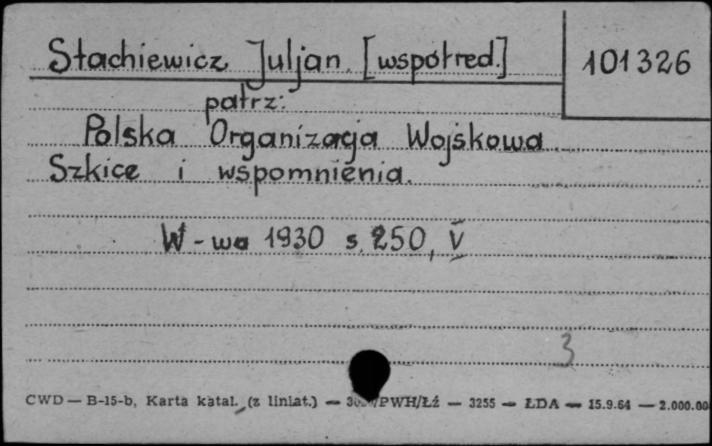 Stachiewicz Juljan. [współred.] 101326
patrz:
Polska Organizacja Wojskowa.
Szkice i wspomnienia.
W-wa 1930 s. 250, V
3
CWD — B-15-b, Karta katal. (z liniat.) — /PWH/Łź — 3255 — ŁDA — 15.9.64 — 2.000.00